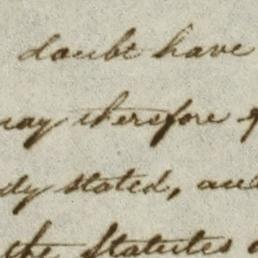 doubt have
may therefore
stated, and
the Statutes